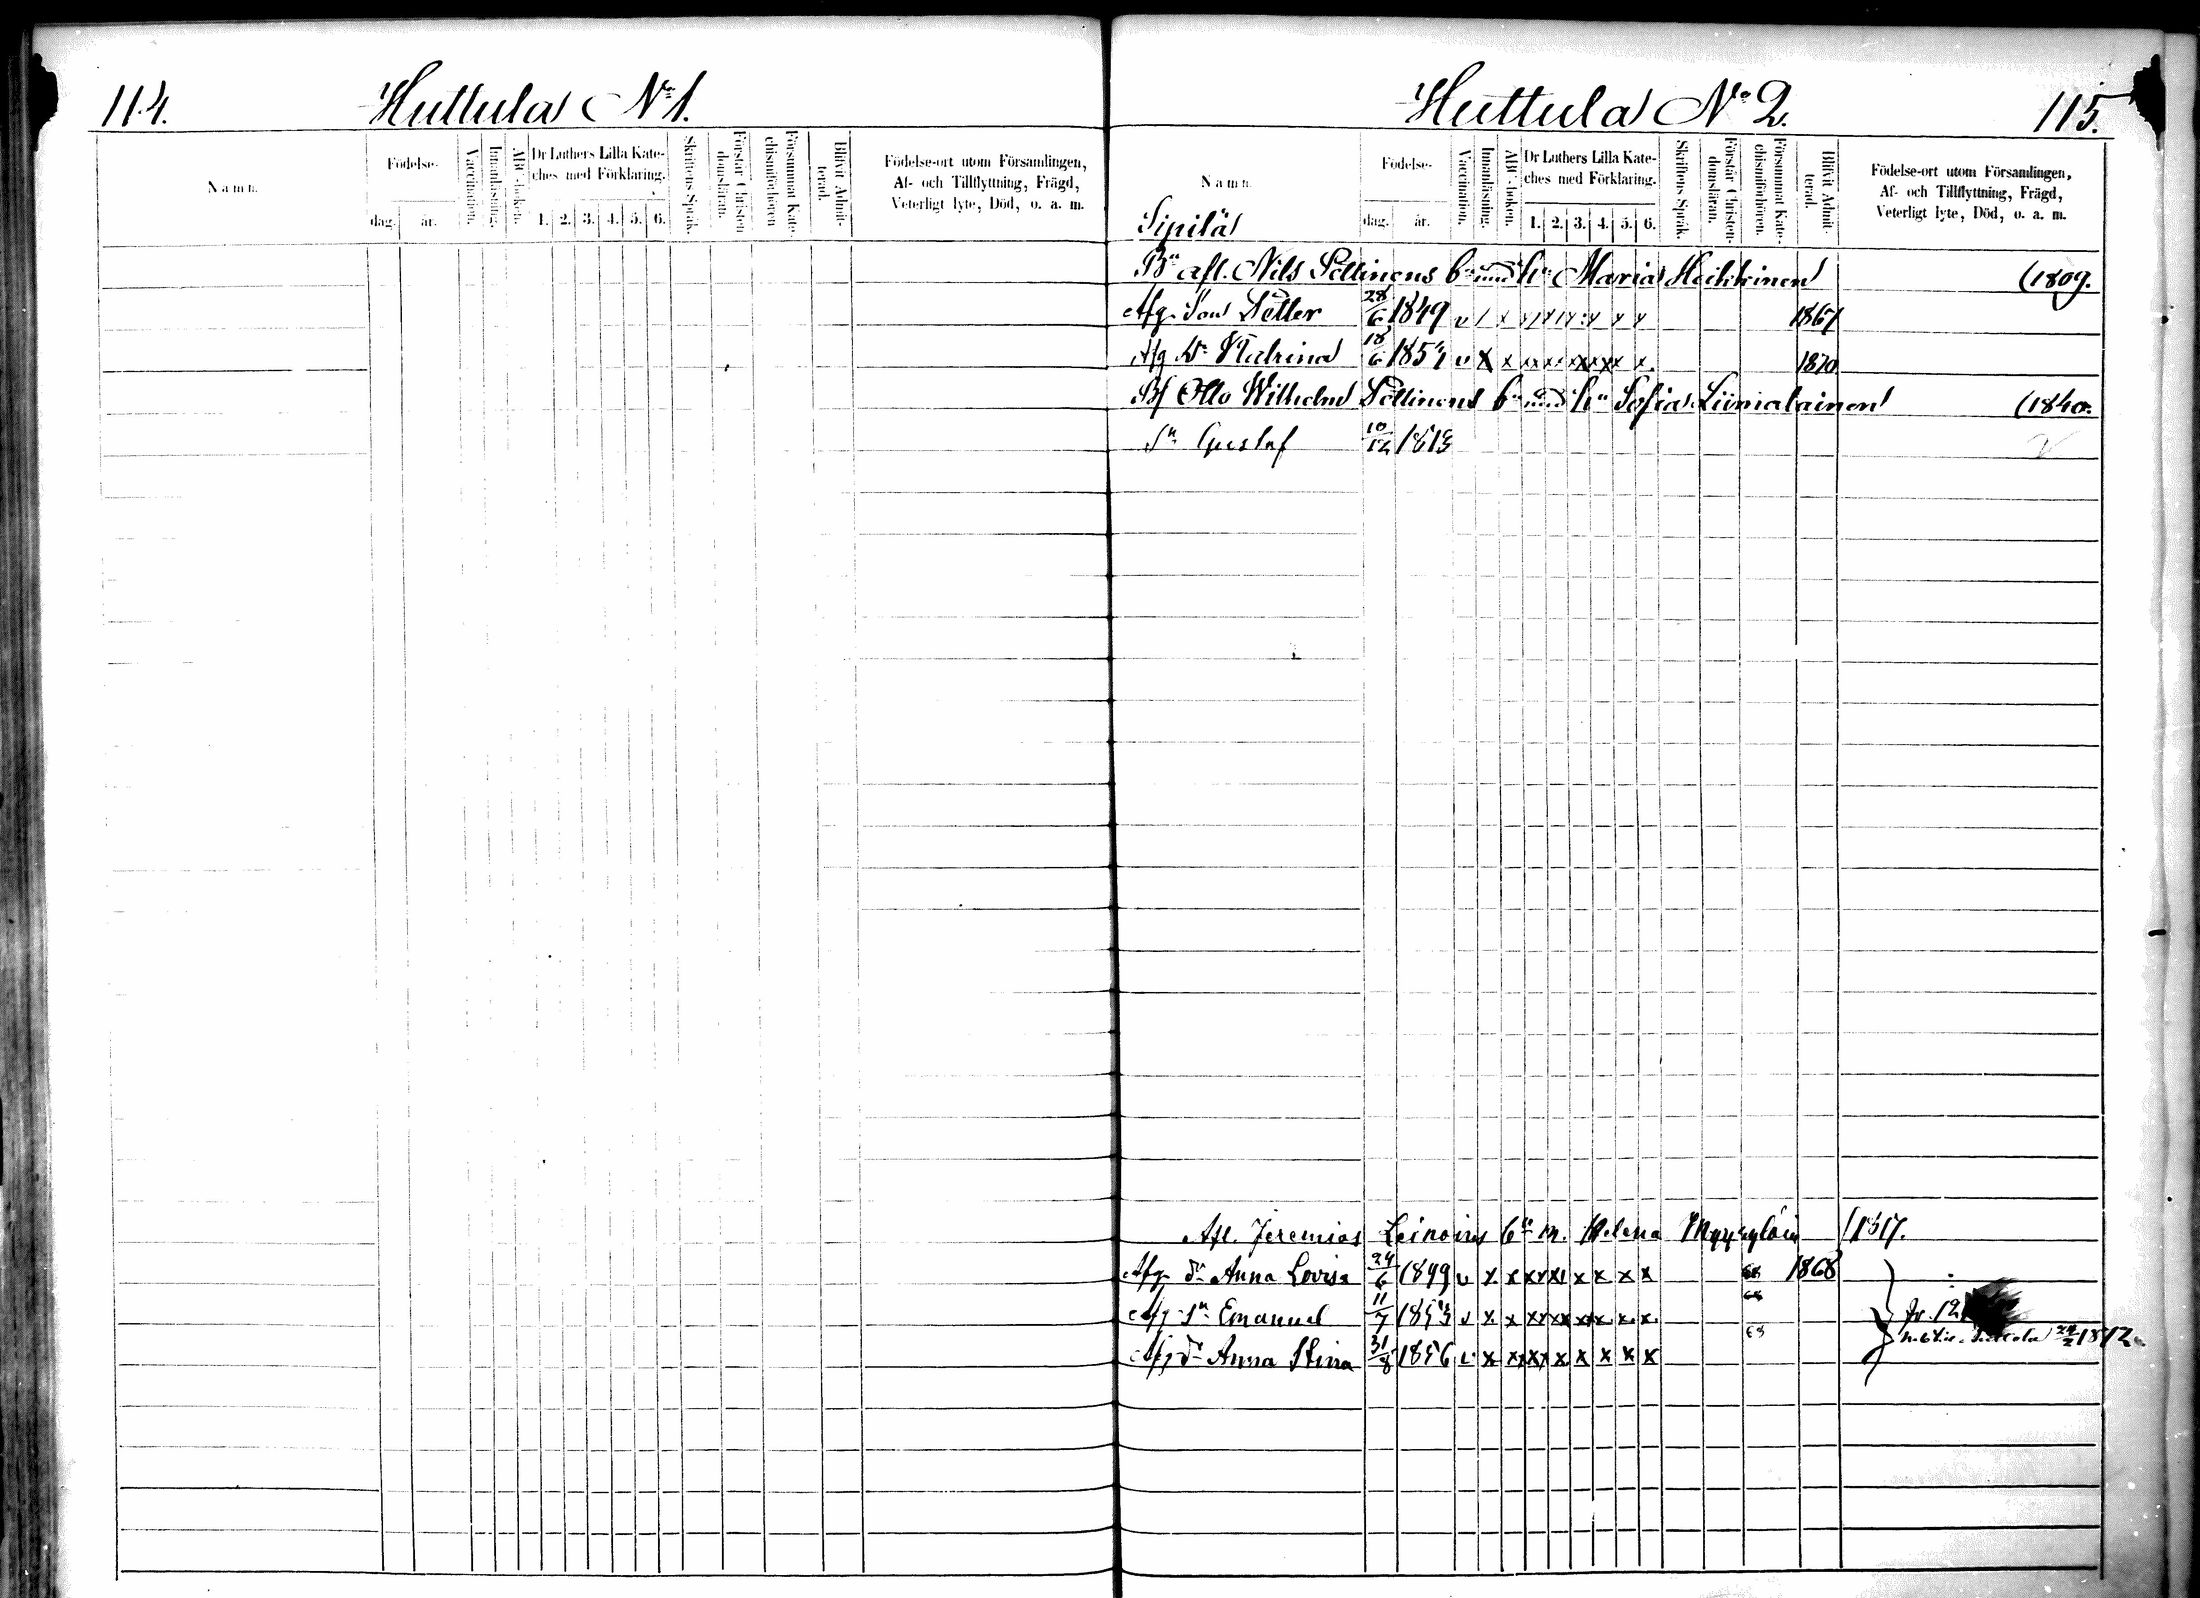 114. Huttula No 1.
Namn.
Födelse-
dag. år.
Vaccination.
Innanläsning.
ABC-boken.
Dr Luthers Lilla Kate-
ches med Förklaring.
1. 2. 3. 4. 5. 6.
Skriftens Språk.
Förstår Christen-
domsläran.
Försummat Kate-
chismiförhören.
Blifvit Admit-
terad.
Födelse-ort utom Församlingen,
Af- och Tillflyttning, Frägd,
Veterligt lyte, Död, o. a. m.
Huttula No 2. 115.
Namn.
Födelse-
dag. år.
Vaccination.
Innanläsning.
ABC-boken.
Dr Luthers Lilla Kate-
ches med Förklaring.
1. 2. 3. 4. 5. 6.
Skriftens Språk.
Förstår Christen-
domsläran.
Försummat Kate-
chismiförhören.
Blifvit Admit-
terad.
Födelse-ort utom Församlingen,
Af- och Tillflyttning, Frägd,
Veterligt lyte, Död, o. a. m.
Sipilä
Bn afl. Nils bn med hn Maria Heikkinen (1809.
Afg. Son Petter 28/6 1849 v / x 1867
Afg Dr Katrina 18/6 v x x 1870
Bf Otto Wilhelm bn med hn Sofia Liimalainen (1840.
Sn Gustaf 10/12
Afl. Jeremias Leinoins bn m. Helena (1817.
Afg. dr Anna Lovisa 24/6 1849 v x x x x x x 68 1868
Afg sn Emanuel 11/7 1853 v x x x x x x 68
Afg dr Anna Stina 31/8 1856 v x x x x x x 68
1872